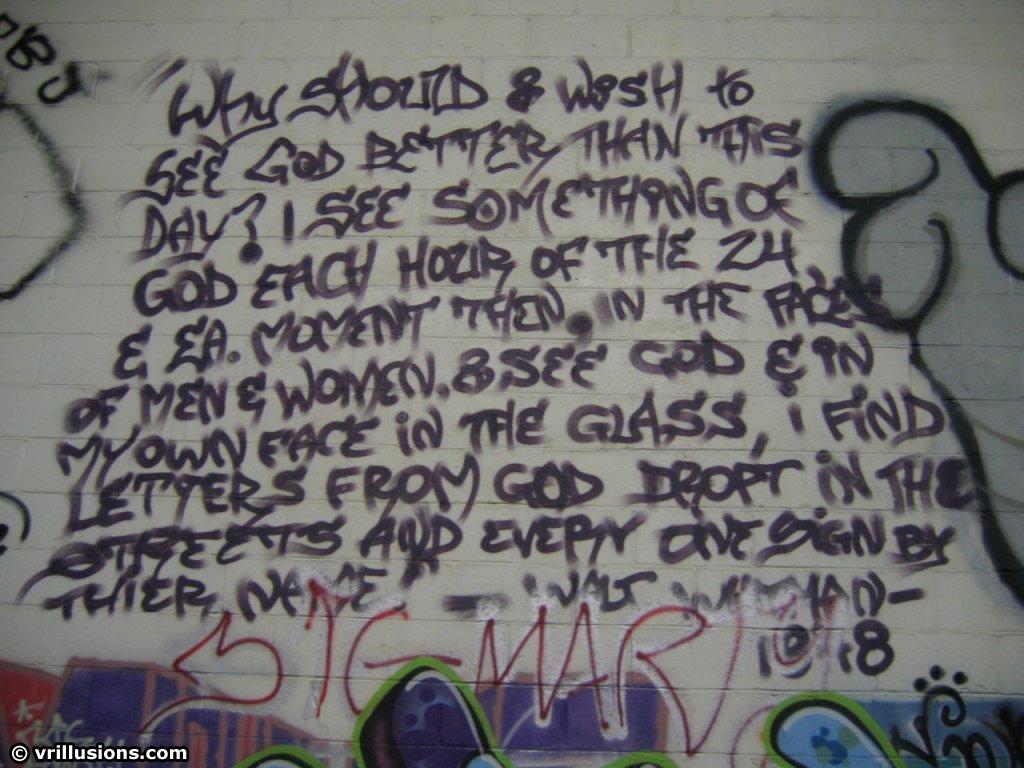 "Why SHOULD & WiSH to
SEE GOD BETTER THAN THiS
DAY? I SEE SOMETHiNG OF
GOD EACH HOUR OF THE 24
& EA. MOMENT THEN, IN THE FACES
OF MEN & WOMEN. & SEE GOD & iN
MY OWN FACE iN THE GLASS, i FiND
LETTERS FROM GOD DROPT iN THE
STREETS AND EVERY ONE SiGN BY
THiER NAME" — WALT WHITMAN—
SIGMAR
© vrillusions.com